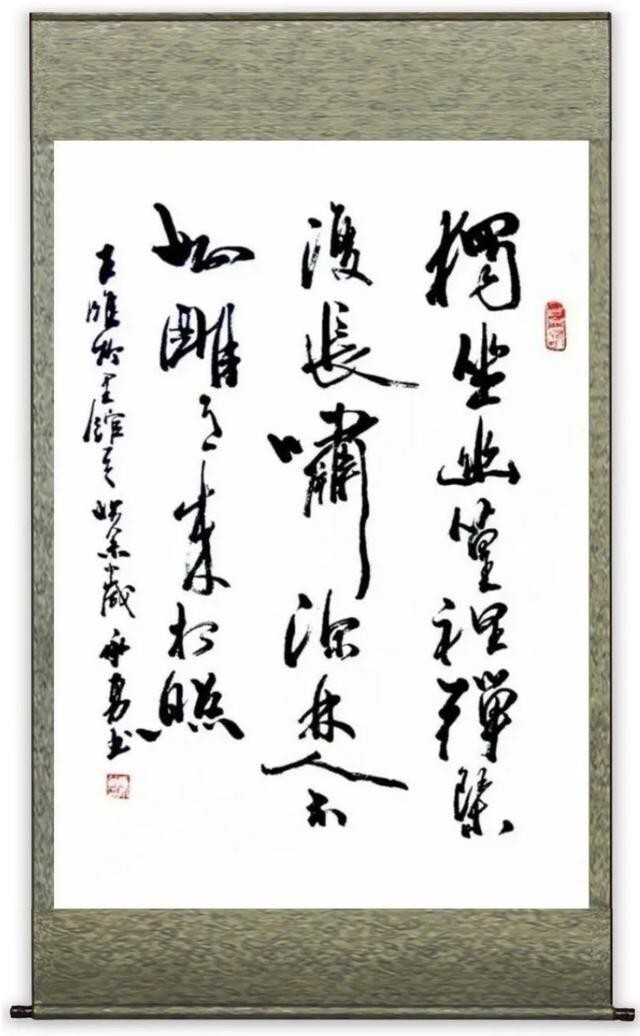 獨坐幽篁裡彈琴
復長嘯深林人不
知明月來相照
王維竹里館歲勇書